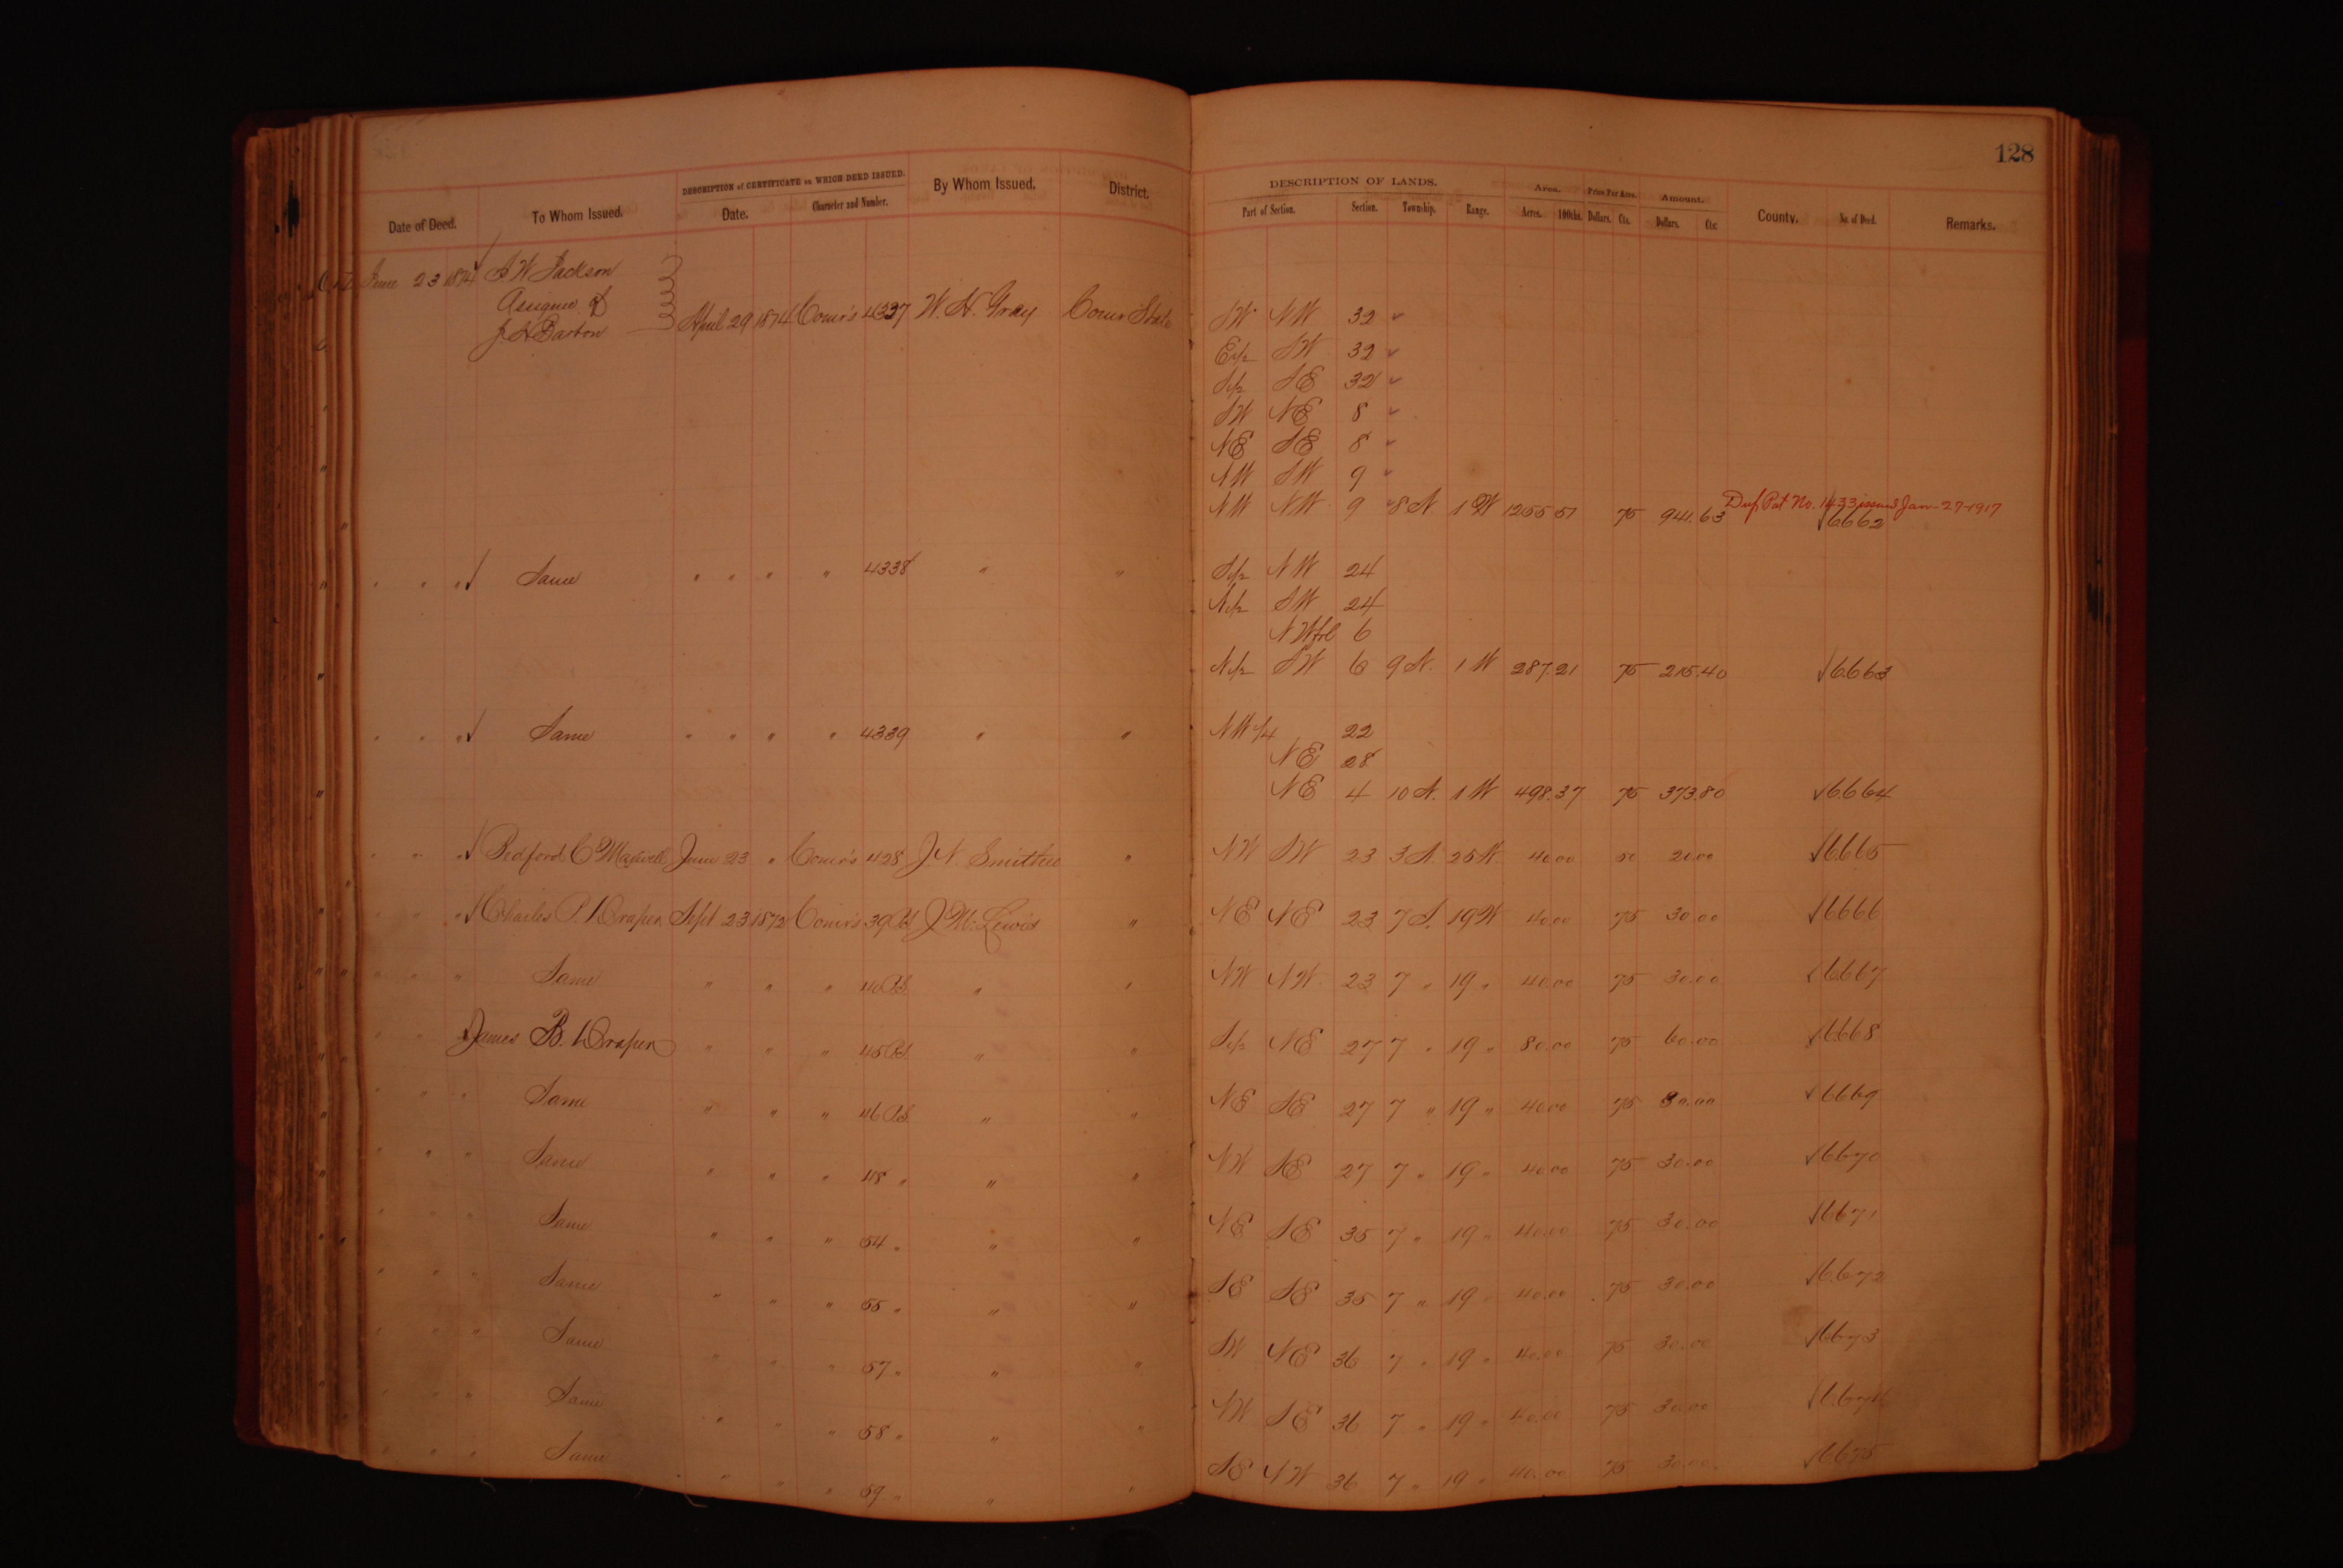 128
DESCRIPTION of CERTIFICATE on WHICH DEED ISSUED. DESCRIPTION OF LANDS. Area. Price Per Acre. Amount.
Date of Deed. To Whom Issued. Date. Character and Number. By Whom Issued. District. Part of Section. Section. Township. Range. Acres. 100ths. Dollars. Cts. Dollars. Cts. County. No. of Deed. Remarks.
June 23 1874 Jackson
Assignee of
J H Barton April 29 1874 Comr's 4337 W. H. Gray Comr State SW NW 32
E 1/2 SW 32
S 1/2 SE 32
SW NE 8
NE SE 8
NW SW 9
Dup Pat No. 1433 issued Jan-27-1917
NW NW 9 8 N. 1 W 1255 51 75 941.63 6662
" " " Same " " " " 4338 " " S 1/2 NW 24
N 1/2 SW 24
NW frl 6
N 1/2 SW 6 9 N. 1 W 287.21 75 215.40 6663
" " " Same " " " " 4339 " " NW 1/4 22
NE 28
NE 4 10 N. 1 W 498.37 75 373.80 6664
" " " Bedford C Maxwell June 23 " Comr's 428 J. N. Smithee " NW SW 23 3 25 W. 40.00 50 20.00 6665
" " " Charles P. Draper Sept 23 1872 Comr's 39 J. M. Lewis " NE NE 23 7 S. 19 W 40.00 75 30.00 6666
" " " Same " " " 40 " " NW NW 23 7 " 19 " 40.00 75 30.00 6667
" " James B. Draper " " " 45 " " S 1/2 NE 27 7 " 19 " 80.00 75 60.00 6668
" " " Same " " " 46 " " NE SE 27 7 " 19 " 40.00 75 30.00 6669
" " " Same " " " 48 " " " NW SE 27 7 " 19 " 40.00 75 30.00 6670
" " " Same " " " 54 " " " NE SE 35 7 " 19 " 40.00 75 30.00 6671
" " " Same " " " 55 " " " SE SE 35 7 " 19 " 40.00 75 30.00 6672
" " " Same " " " 57 " " " SW NE 36 7 " 19 " 40.00 75 30.00 6673
" " " Same " " " 58 " " " NW SE 36 7 " 19 " 40.00 75 30.00 6674
" " " Same " " " 59 " " " SE NW 36 7 " 19 " 40.00 75 30.00 6675